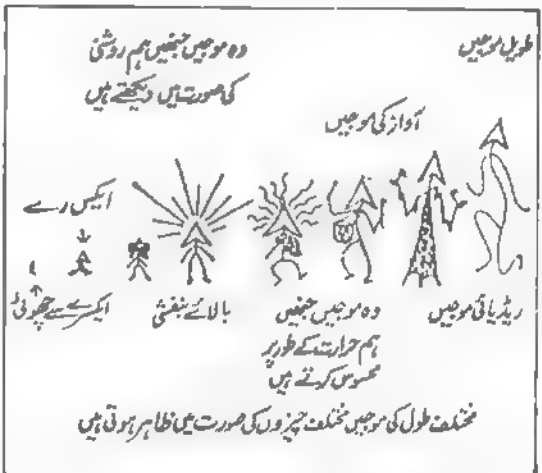 طویل موجیں
وہ موجیں جنہیں ہم روشنی
کی صورت میں دیکھتے ہیں
آواز کی موجیں
ایکس رے
ریڈیائی موجیں
وہ موجیں جنہیں
ہم حرارت کے طور پر
محسوس کرتے ہیں
بالائے بنفشی
ایکسرے سے چھوٹی
مختلف طول کی موجیں مختلف چیزوں کی صورت میں ظاہر ہوتی ہیں